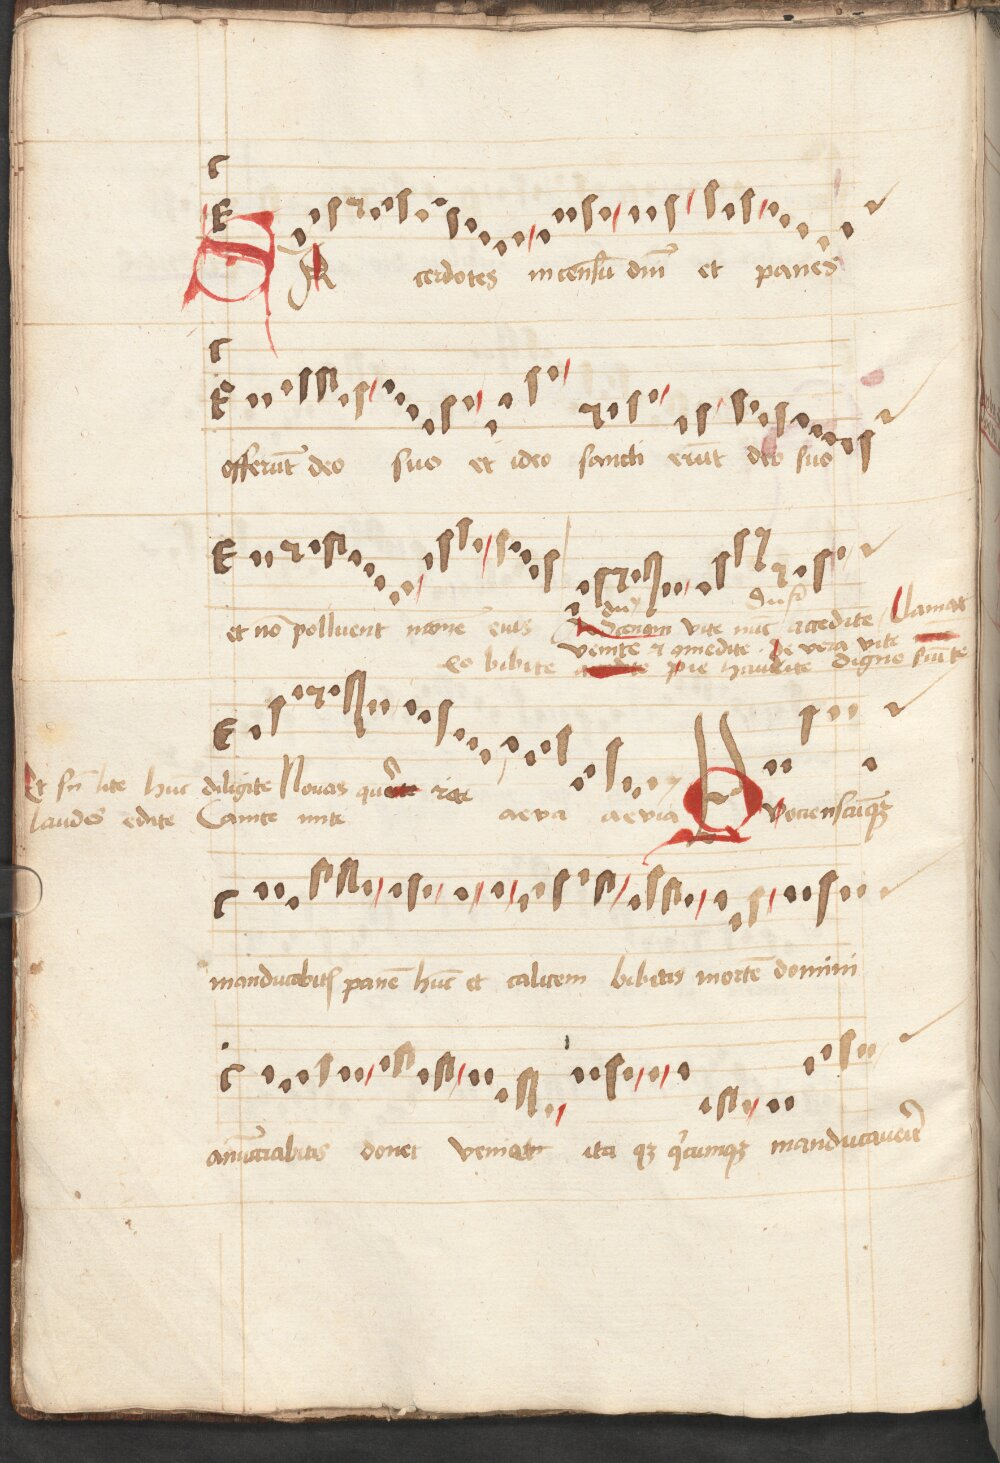 SA cerdotes incensū dnī et panes
offerūt deo suo et ideo sancti erūt deo suo
et nō polluent nomē eius Ad cenam vite nūc accedite Clamat
venite et comedite De vera vite
eo bibite pie haurite digne sumite
Et sn̄ lite hūc diligite Nouas querite
laudes edite Cantc aeva aevia Quocienscūqꝫ
manducabitꝭ panē hūc et calicem bibetis mortē domini
anūctiabitis donec veniat ita qꝫ qͥcumqꝫ manducauerit